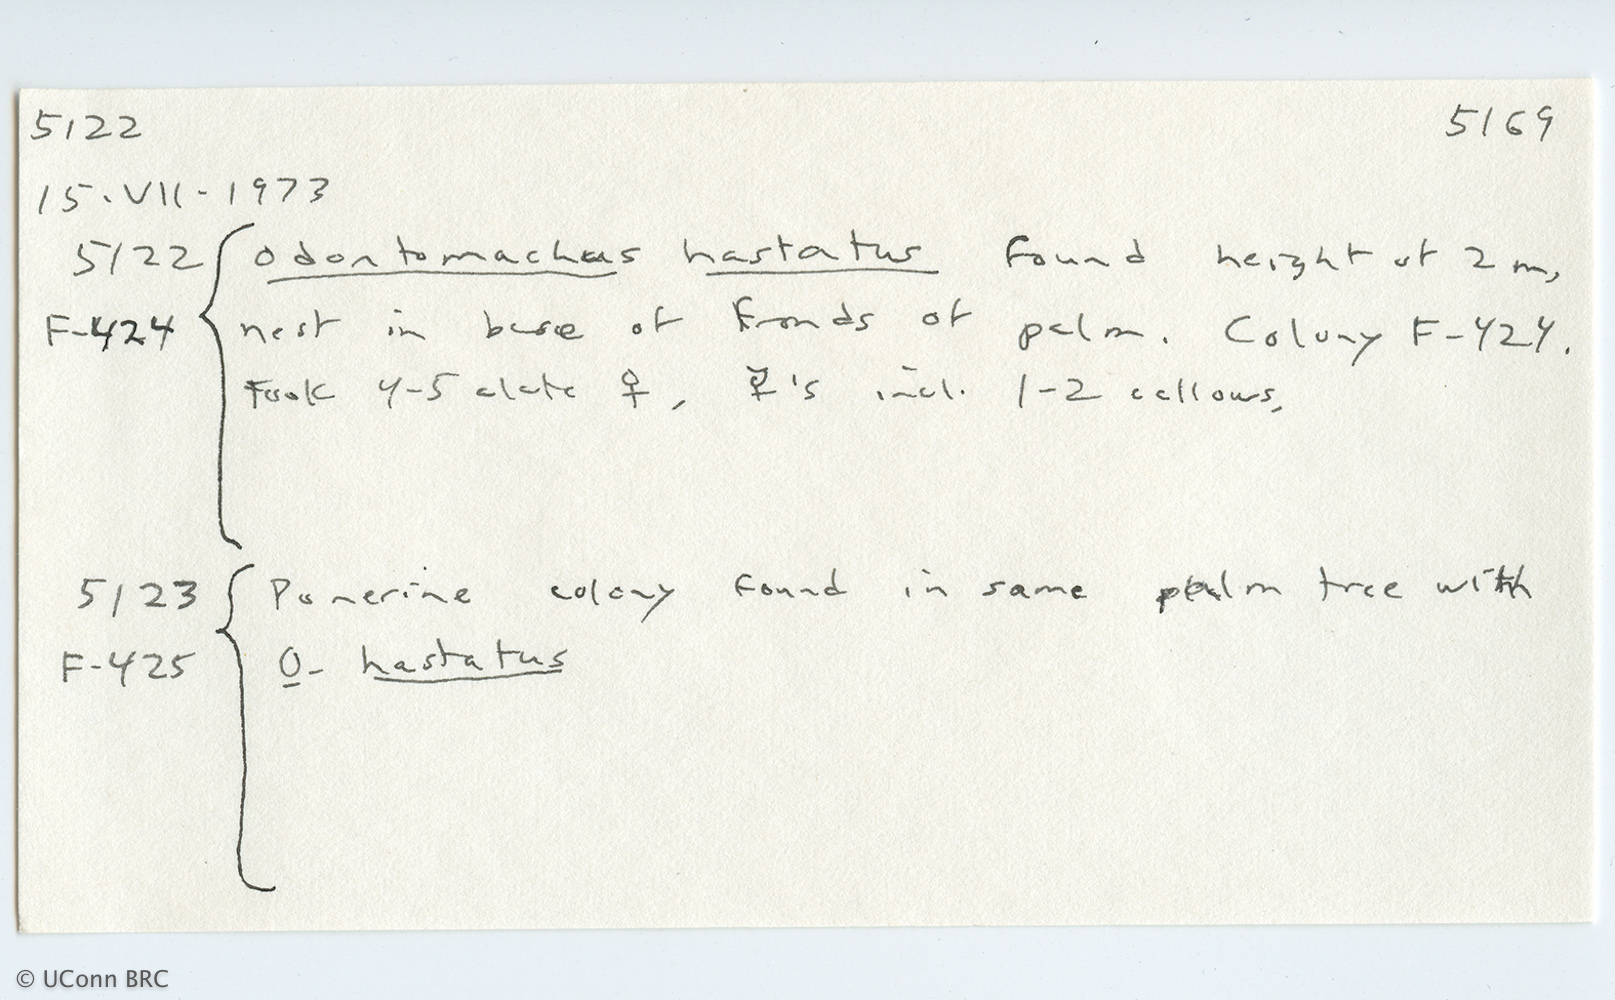 5122 5169
15.VII-1973
5122 Odontomachus hastatus found height of 2 m,
F-424 nest in base of fronds of palm. Colony F-424.
Took 4-5 alate ♀, ☿'s incl. 1-2 callows.
5123 Ponerine colony found in same palm tree with
F-425 O. hastatus
© UConn BRC